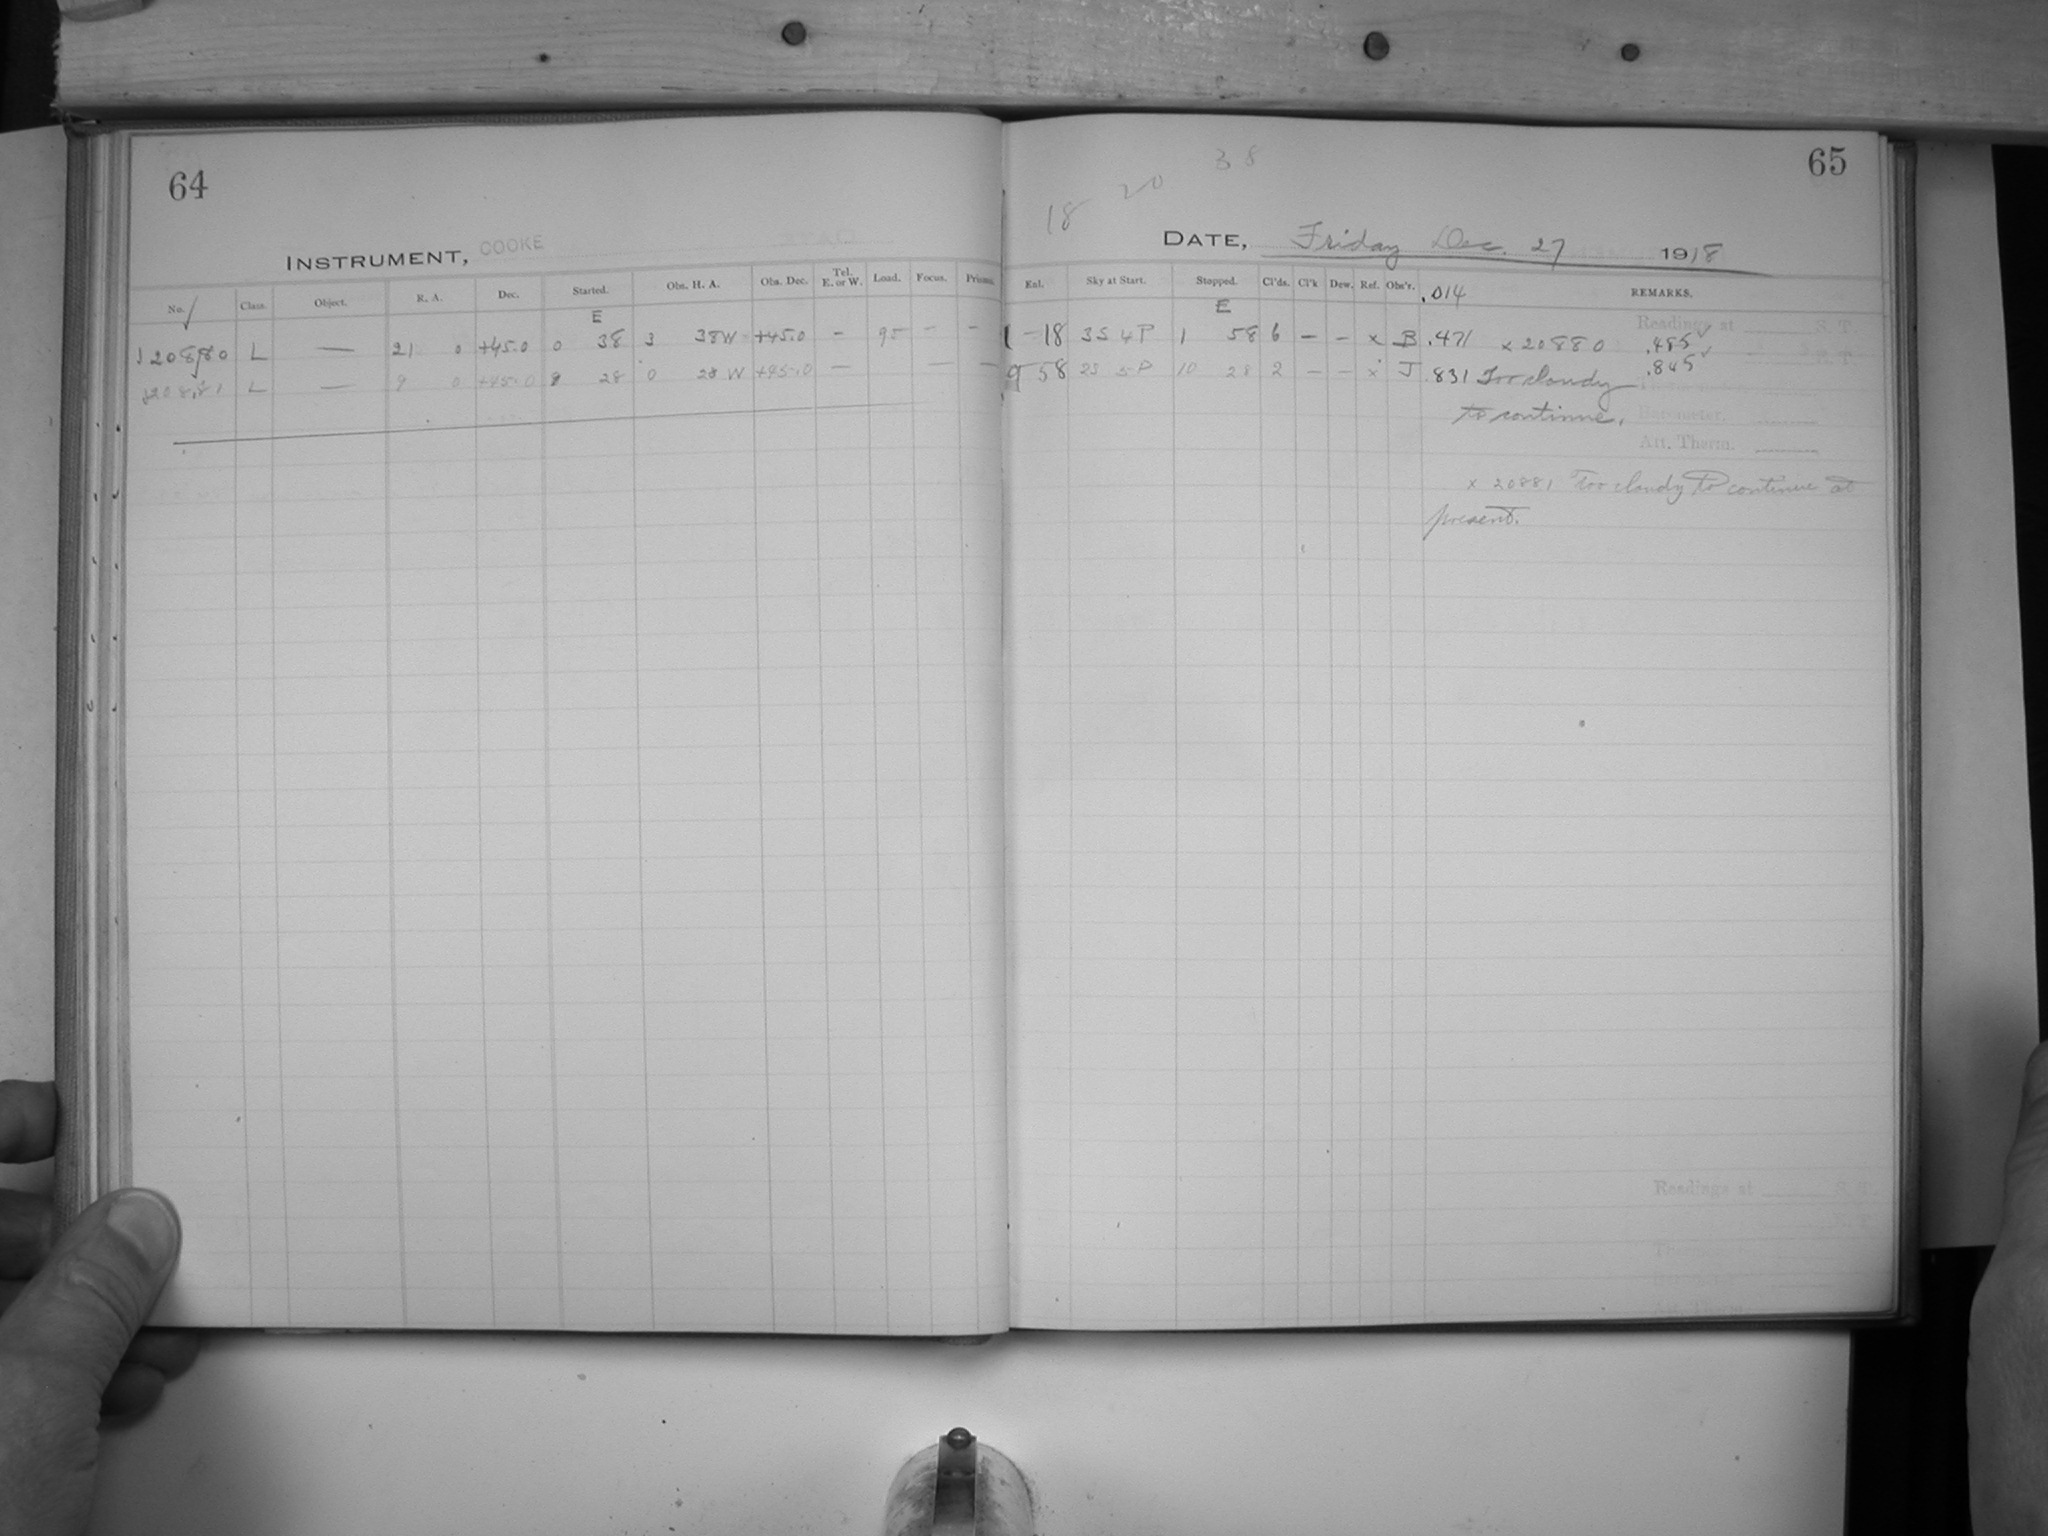 64
INSTRUMENT, COOKE
No. Class. Object. R. A. Dec. Started. Obs. H. A. Obs. Dec. Tel. E. or W. Load. Focus. Prisms.
E
20880 L — 21 0 +45.0 0 38 3 38W +45.0 – 95 – –
20881 L — 9 0 +45.0 9 28 0 28 W +45.0 — — —
38
20
18
65
DATE, Friday Dec. 27 1918
Exl. Sky at Start. Stopped. Cl'ds. Cl'k Dew. Ref. Obs'r. .014 REMARKS.
E
Readings at S. T.
1 – 18 3S 4P 1 58 6 – – x B .471 x 20880 .485
9 58 2S 5P 10 28 2 – – x J .831 Too cloudy .845
to continue. Barometer.
Att. Therm.
x 20881 Too cloudy to continue at
present.
Readings at S. T.